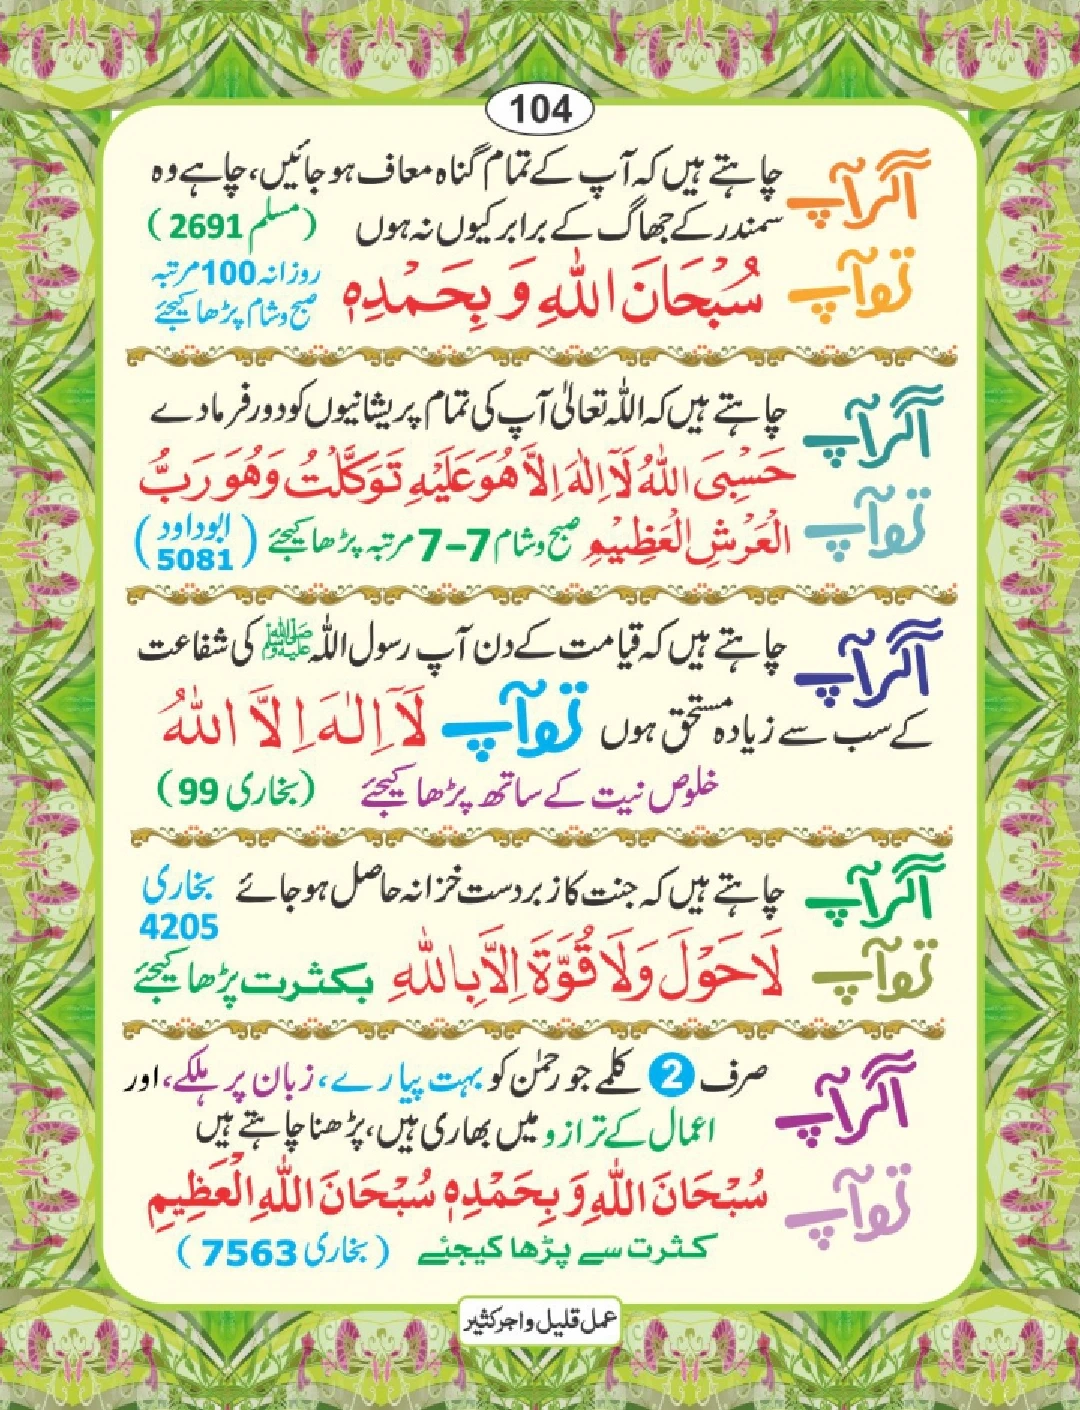 104
اگر آپ چاہتے ہیں کہ آپ کے تمام گناہ معاف ہو جائیں، چاہے وہ
سمندر کے جھاگ کے برابر کیوں نہ ہوں (مسلم 2691)
تو آپ سُبْحَانَ اللّٰهِ وَ بِحَمْدِهٖ روزانہ 100 مرتبہ
صبح و شام پڑھا کیجئے
اگر آپ چاہتے ہیں کہ اللہ تعالیٰ آپ کی تمام پریشانیوں کو دور فرمادے
تو آپ حَسْبِیَ اللّٰهُ لَآ اِلٰهَ اِلَّا هُوَ عَلَیْهِ تَوَکَّلْتُ وَهُوَ رَبُّ
الْعَرْشِ الْعَظِیْمِ صبح و شام 7-7 مرتبہ پڑھا کیجئے (ابوداود 5081)
اگر آپ چاہتے ہیں کہ قیامت کے دن آپ رسول اللہ ﷺ کی شفاعت
کے سب سے زیادہ مستحق ہوں تو آپ لَآ اِلٰهَ اِلَّا اللّٰهُ
خلوص نیت کے ساتھ پڑھا کیجئے (بخاری 99)
اگر آپ چاہتے ہیں کہ جنت کا زبردست خزانہ حاصل ہو جائے بخاری 4205
تو آپ لَا حَوْلَ وَلَا قُوَّةَ اِلَّا بِاللّٰهِ بکثرت پڑھا کیجئے
اگر آپ صرف 2 کلمے جو رحمٰن کو بہت پیارے، زبان پر ہلکے، اور
اعمال کے ترازو میں بھاری ہیں، پڑھنا چاہتے ہیں
تو آپ سُبْحَانَ اللّٰهِ وَ بِحَمْدِهٖ سُبْحَانَ اللّٰهِ الْعَظِیْمِ
کثرت سے پڑھا کیجئے (بخاری 7563)
عمل قلیل و اجر کثیر